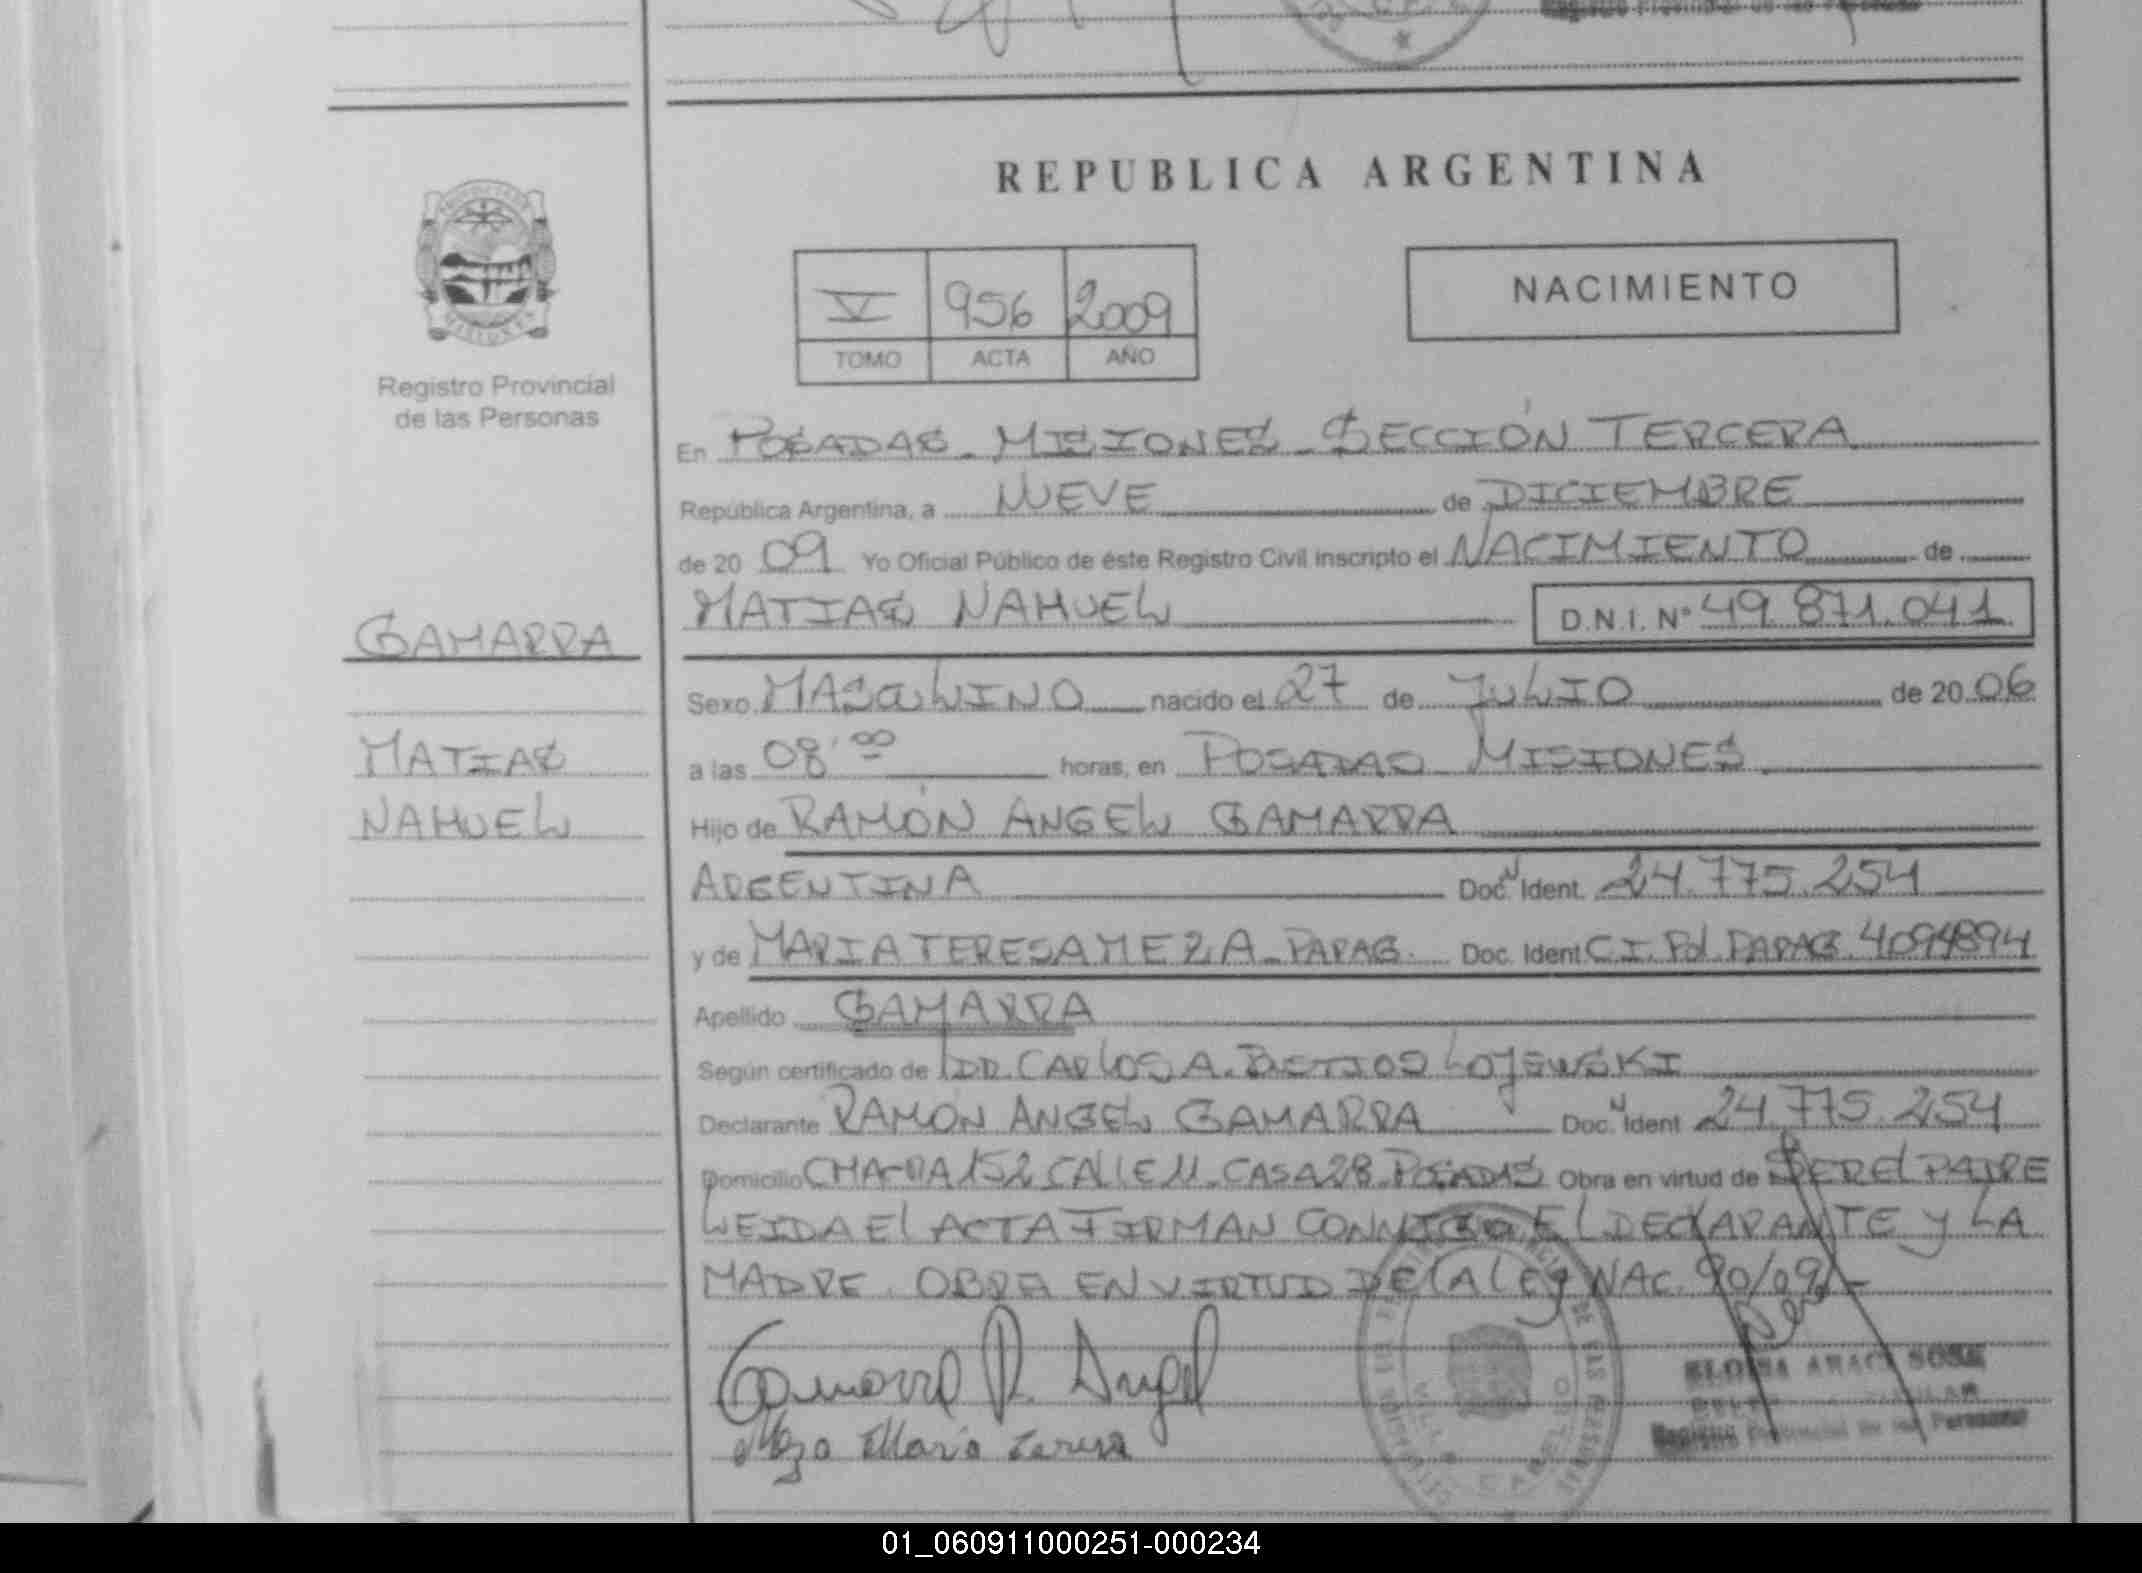 REPUBLICA ARGENTINA
V 956 2009
TOMO ACTA AÑO
NACIMIENTO
Registro Provincial
de las Personas
En POSADAS - MISIONES - SECCIÓN TERCERA
República Argentina, a NUEVE de DICIEMBRE
de 20 09 Yo Oficial Público de éste Registro Civil inscripto el NACIMIENTO de
MATIAS NAHUEL D.N.I. Nº 49.871.041
GAMARRA
Sexo MASCULINO nacido el 27 de JULIO de 20 06
MATIAS
a las 08:00 horas, en POSADAS MISIONES
NAHUEL
Hijo de RAMÓN ANGEL GAMARRA
ARGENTINA Doc. Ident. 24.775.254
y de MARIA TERESA MEZA - PARAG. Doc. Ident C.I. Pol. PARAG. 4094894
Apellido GAMARRA
Según certificado de DR. CARLOS A. LOJEWSKI
Declarante RAMÓN ANGEL GAMARRA Doc. Ident 24.775.254
Domicilio CHACRA 152 CALLE 11 - CASA 28 - POSADAS Obra en virtud de SER EL PADRE
LEIDA El ACTA FIRMAN CONMIGO El DECLARANTE y LA
MADRE. OBRA EN VIRTUD DE LA LEY NAC. 90/09
Gamarra R. Angel
Meza Maria Teresa
Registro Provincial de las Personas
01_060911000251-000234